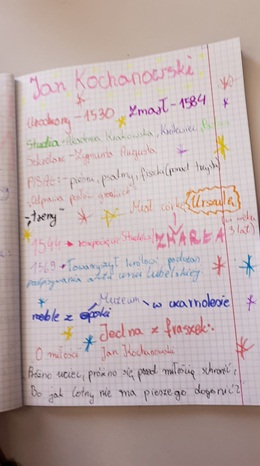 Jan Kochanowski
Urodzony - 1530 Zmarł - 1584
Studia - Akademia Krakowska, Królewiec, Padwa
Sekretarz - Zygmunta Augusta
PISAŁ: - pieśni, psalmy, fraszki (ponad trzysta)
"Odprawa posłów greckich"
-"treny" - Miał córkę Urszulę
1544 rozpoczęcie Studiów ZMARŁA (w wieku
3 lat)
1569 - Towarzyszył królowi podczas
podpisywania aktu unii lubelskiej
Muzeum w czarnolesie
meble z epoki
Jedna z fraszek:.
O miłości Jan Kochanowski
Próżno uciec, próżno się przed miłością schronić,
Bo jak lotny nie ma pieszego dogonić?